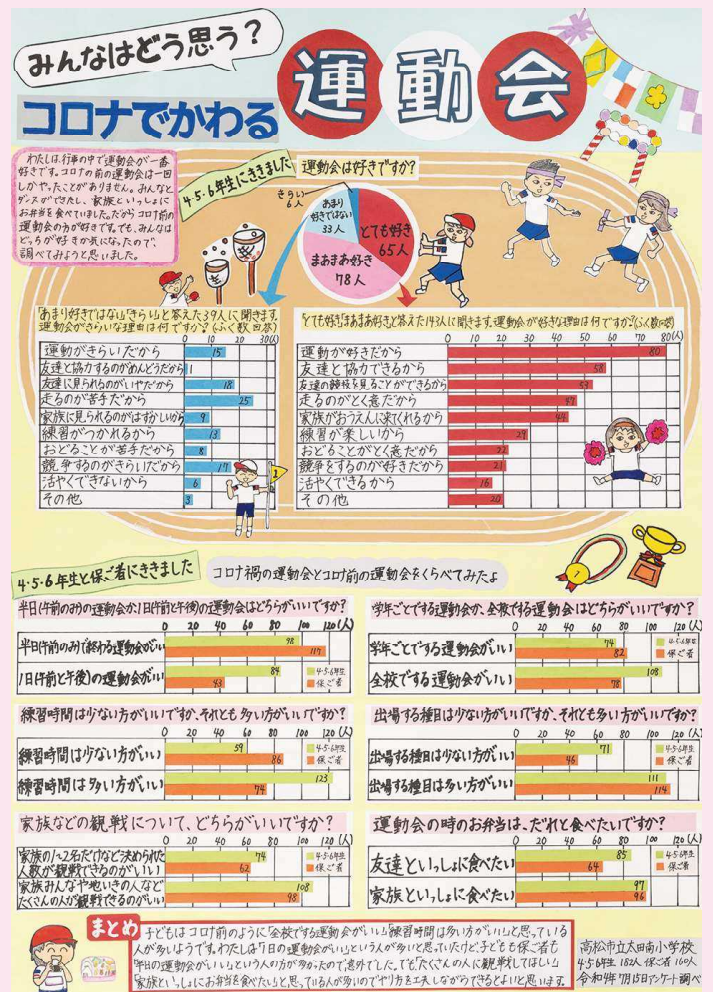 みんなはどう思う?
コロナでかわる
運動会
わたしは、行事の中で運動会が一番
好きです。コロナの前の運動会は一回
しかやったことがありません。みんなと
ダンスができたし、家族といっしょに
お弁当を食べていました。だからコロナ前の
運動会の方が好きです。でも、みんなは
どっちが好きか気になったので、
調べてみようと思いました。
4・5・6年生にききました
運動会は好きですか?
きらい
6人
あまり
好きではない
33人
とても好き
65人
まあまあ好き
78人
「あまり好きではない」「きらい」と答えた39人に聞きます。
運動会がきらいな理由は何ですか?(ふく数回答)
0 10 20 30(人)
運動がきらいだから 15
友達と協力するのがめんどうだから 1
友達に見られるのがいやだから 18
走るのが苦手だから 25
家族に見られるのがはずかしいから 9
練習がつかれるから 13
おどることが苦手だから 8
競争するのがきらいだから 17
活やくできないから 6
その他 3
「とても好き」「まあまあ好き」と答えた143人に聞きます。運動会が好きな理由は何ですか?(ふく数回答)
0 10 20 30 40 50 60 70 80(人)
運動が好きだから 80
友達と協力できるから 58
友達の競技を見ることができるから 53
走るのがとく意だから 47
家族がおうえんに来てくれるから 44
練習が楽しいから 29
おどることがとく意だから 22
競争をするのが好きだから 21
活やくできるから 16
その他 20
1
1
4・5・6年生と保ご者にききました
コロナ禍の運動会とコロナ前の運動会をくらべてみたよ
半日(午前のみ)の運動会か、1日(午前と午後)の運動会はどちらがいいですか?
0 20 40 60 80 100 120(人)
半日(午前のみ)で終わる運動会がいい 98 117
1日(午前と午後)の運動会がいい 84 43
4・5・6年生
保ご者
学年ごとでする運動会か、全校でする運動会はどちらがいいですか?
0 20 40 60 80 100 120(人)
学年ごとでする運動会がいい 74 82
全校でする運動会がいい 108 78
4・5・6年生
保ご者
練習時間は少ない方がいいですか、それとも多い方がいいですか?
0 20 40 60 80 100 120(人)
練習時間は少ない方がいい 59 86
練習時間は多い方がいい 123 74
4・5・6年生
保ご者
出場する種目は少ない方がいいですか、それとも多い方がいいですか?
0 20 40 60 80 100 120(人)
出場する種目は少ない方がいい 71 46
出場する種目は多い方がいい 111 114
4・5・6年生
保ご者
家族などの観戦について、どちらがいいですか?
0 20 40 60 80 100 120(人)
家族の1~2名だけなど決められた
人数が観戦できるのがいい 74 62
家族みんなや地いきの人など
たくさんの人が観戦できるのがいい 108 98
4・5・6年生
保ご者
運動会の時のお弁当は、だれと食べたいですか?
0 20 40 60 80 100 120(人)
友達といっしょに食べたい 85 64
家族といっしょに食べたい 97 96
4・5・6年生
保ご者
まとめ
子どもはコロナ前のように「全校でする運動会がいい」「練習時間は多い方がいい」と思っている
人が多いようです。わたしは「1日の運動会がいい」という人が多いと思っていたけど、子どもも保ご者も
「半日の運動会がいい」という人の方が多かったので、意外でした。でも、「たくさんの人に観戦してほしい」
「家族といっしょにお弁当を食べたい」と思っている人が多いのでやり方を工夫しながらできるとよいと思います。
高松市立太田南小学校
4・5・6年生 182人 保ご者 160人
令和4年7月15日アンケート調べ